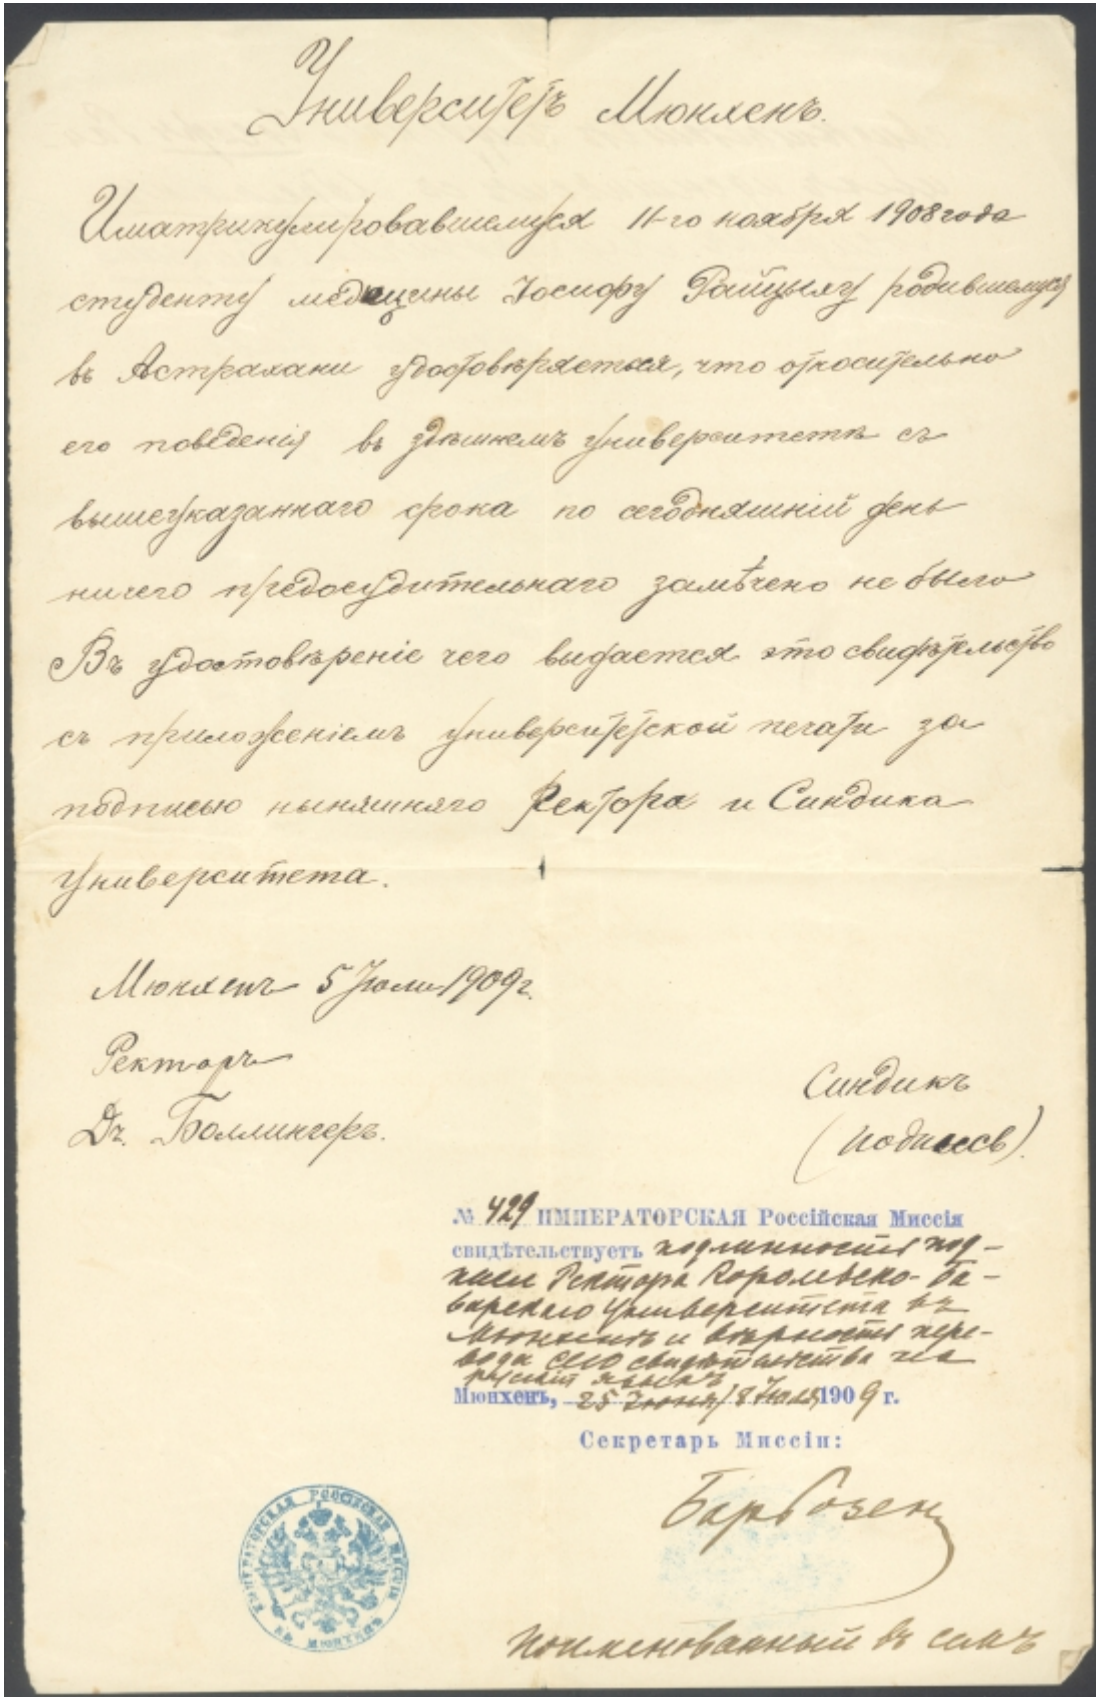 Университетъ Мюнхенъ.
Иматрикулировавшемуся 11-го ноября 1908 года
студенту медицины Іосифу Райцыху родившемуся
въ Астрахани удостовѣряется, что относительно
его поведенія въ здѣшнемъ университетѣ съ
вышеуказаннаго срока по сегодняшній день
ничего предосудительнаго замѣчено не было
Въ удостовѣреніе чего выдается это свидѣтельство
съ приложеніемъ университетской печати за
подписью нынѣшняго Ректора и Синдика
университета.
Мюнхенъ 5 Іюля 1909 г.
Ректоръ
Др. Боллингеръ.
Синдикъ
(подпись).
№ 429 ИМПЕРАТОРСКАЯ Россійская Миссія
свидѣтельствуетъ подлинность под-
писи Ректора Королевско-Ба-
варскаго Университета въ
Мюнхенѣ и вѣрность пере-
вода сего свидѣтельства на
русскій языкъ
Мюнхенъ, 25 Іюня/8 Іюля 1909 г.
Секретарь Миссіи:
ИМПЕРАТОРСКАЯ РОССІЙСКАЯ МИССІЯ
ВЪ МЮНХЕНѢ
поименованный въ семъ